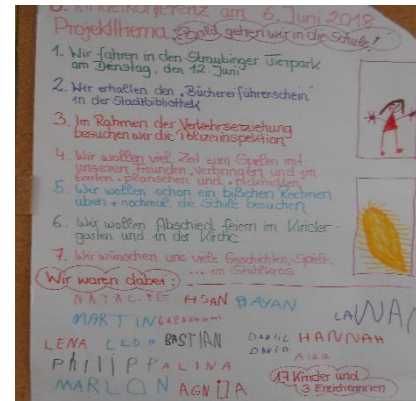 Kinderkonferenz am 6. Juni 2018
Projektthema: „Bald gehen wir in die Schule!"
1. Wir fahren in den Straubinger Tierpark
am Dienstag, den 12. Juni
2. Wir erhalten den „Büchereiführerschein"
in der Stadtbibliothek
3. Im Rahmen der Verkehrserziehung
besuchen wir die Polizeiinspektion
4. Wir wollen viel Zeit zum Spielen mit
unseren Freunden verbringen und im
Garten planschen und picknicken
5. Wir wollen schon ein bißchen Rechnen
üben + nochmal die Schule besuchen
6. Wir wollen Abschied feiern im Kinder-
garten und in der Kirche
7. Wir wünschen uns viele Geschichten, Spiele
... im Stuhlkreis
Wir waren dabei:
NATALIE HSAN AYAN
MARTIN LAWAN
LENA LEON BASTIAN DANIEL HANNAH
DAVID Aida
PhiliPP ALINA
MARLON AGNIJA
17 Kinder und
3 Erzieherinnen